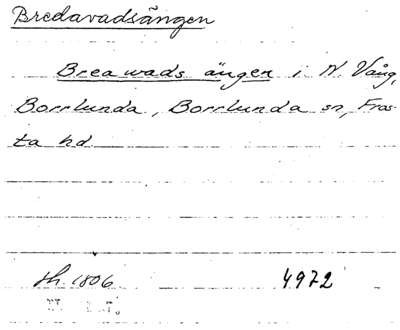 Bredavadsängen
Breawads ängen i N. Vång,
Borrlunda, Borrlunda sn, Fros-
ta hd
sh. 1806 4972